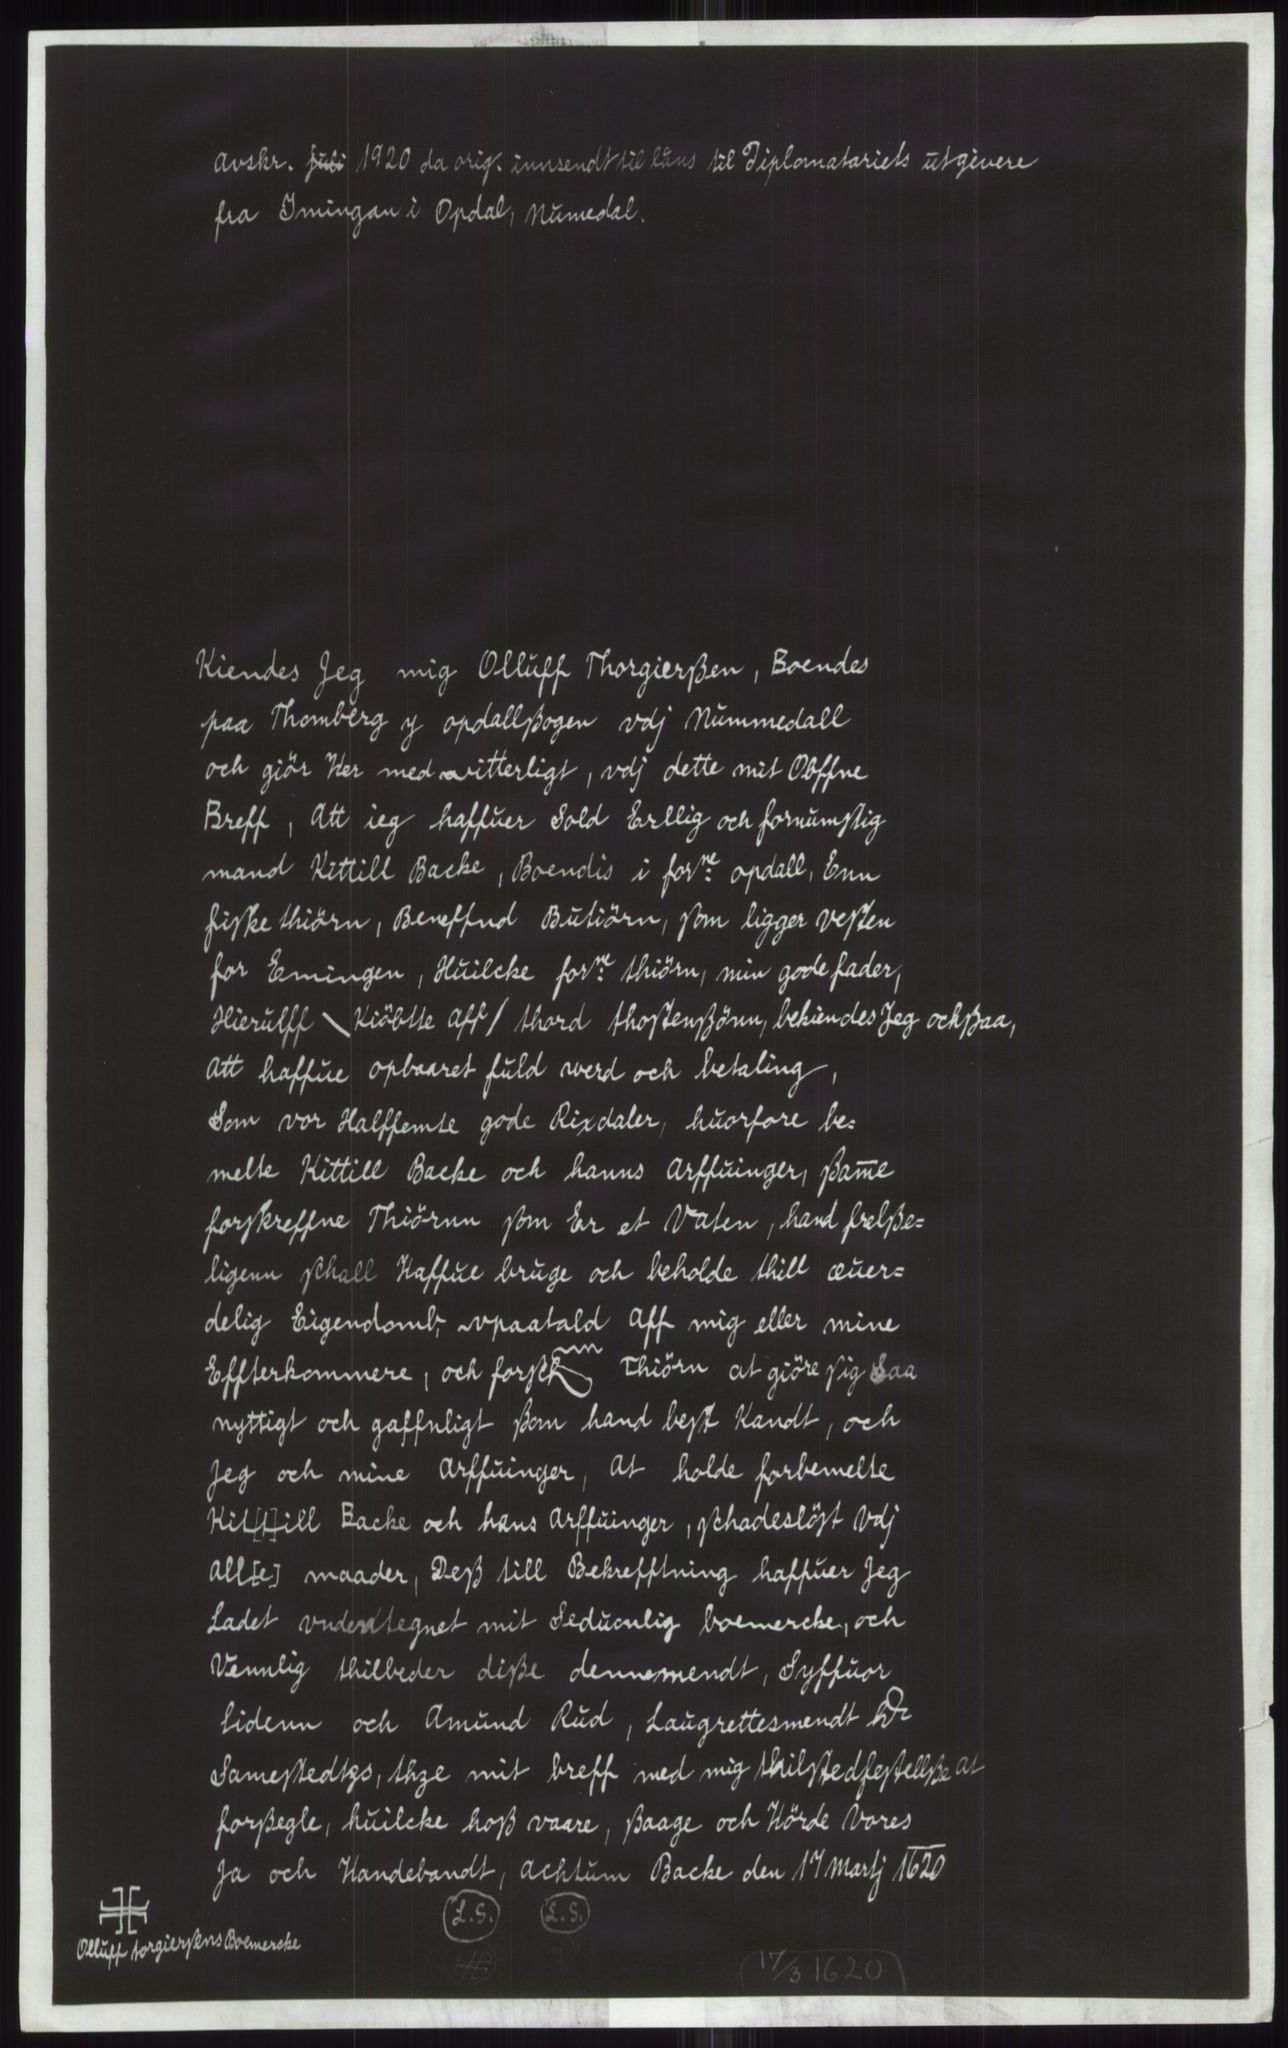 avskr. juli 1920 da orig. innsendt til låns til Diplomatariets utgivere
fra Imingan i Opdal, Numedal.
Kiendes Jeg mig Olluff Thorgierßen, Boendes
paa Thomberg y opdallßogen vdj Nummedall
och giör Her med witterligt, vdj dette mit Obffne
Breff, Att ieg haffuer Sold Erllig och fornumstig
mand Kittill Backe, Boendis i forne: opdall, Enn
fiske thiörn, Beneffnd Butiörn, som ligger vesten
for Emingen, Huilcke forne: thiörn, min gode fader,
Hierulff \ Kiöbtte Aff / thord thostenßönn, bekiendes Jeg ochßaa,
Att haffue opbaaret fuld werd och betaling,
Som vor Halffemte gode Rixdaler, huorfore be=
melte Kittill Backe och hanns Arffuinger, ßam̅e
forskreffne Thiörnn som Er et Vaten, hand frelße=
ligenn schall Haffue bruge och beholde thill æuer=
delig Eigendomb, vpaatald Aff mig eller mine
Effterkommere, och Thiörn at giöre sig Saa
nyttigt och gaffnligt som hand best Kandt, och
Jeg och mine Arffuinger, At holde forbemelte
Kit[t]ill Backe och hans Arffuinger, schadeslöst Vdj
All[e] maader, Deß till Bekrefftning haffuer Jeg
Ladet vnderdtegnet mit Seduonlig boemercke, och
Vennlig thilbeder diße dennemendt, Syffuor
Lidenn och Amund Rud, Laugrettesmendt
Samestedtzs, thze mit breff med mig thilstedfestellße at
forßegle, huilcke hoß vaare, ßaage och Hörde Vores
Ja och Handebandt, Achtum Backe den 17 Martj 1620
L.S. L.S.
Olluff torgierßens Boemercke
17/3 1620